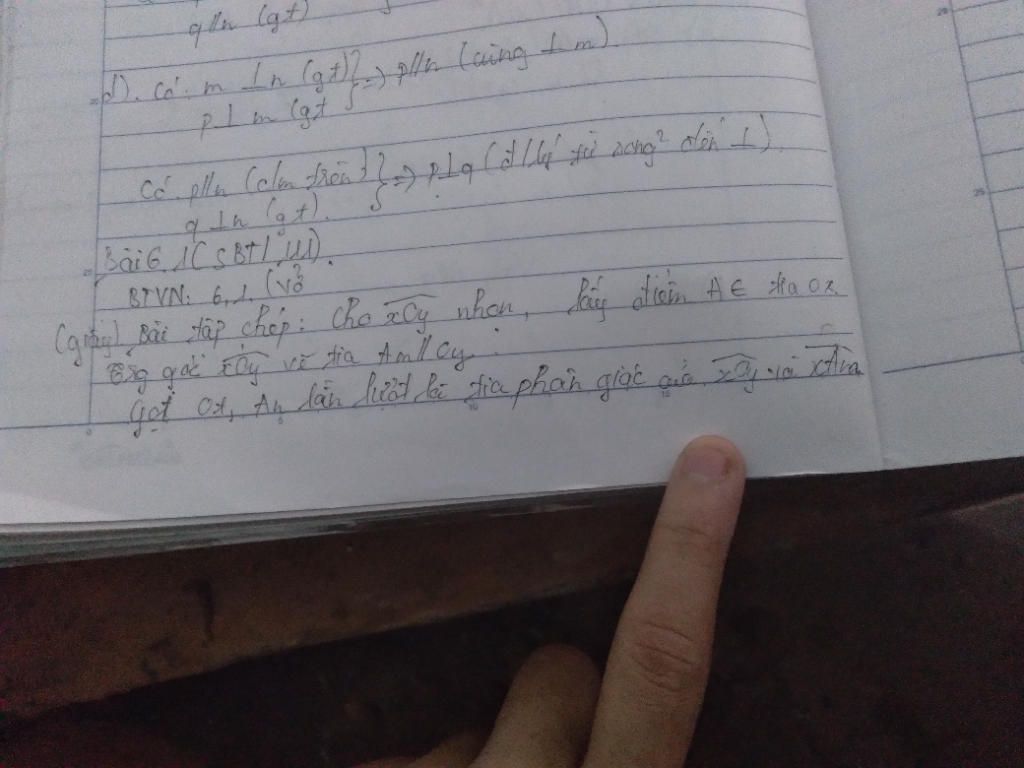 q//n (gt)
d). Có: m ⊥ n (gt) } => p//n (cùng ⊥ m).
p ⊥ m (gt
Có p//n (c/m trên) } => p⊥q (đ/lý từ song² đến ⊥).
q ⊥n (gt).
Bài 6.1 (SBT/
BTVN: 6,1. (vở
(giấy) Bài tập chép: Cho xOy nhọn, lấy điểm A ∈ tia Ox
góc xOy vẽ tia Am//Oy.
Gọi Ot, An lần lượt là tia phân giác của xOy và xAm